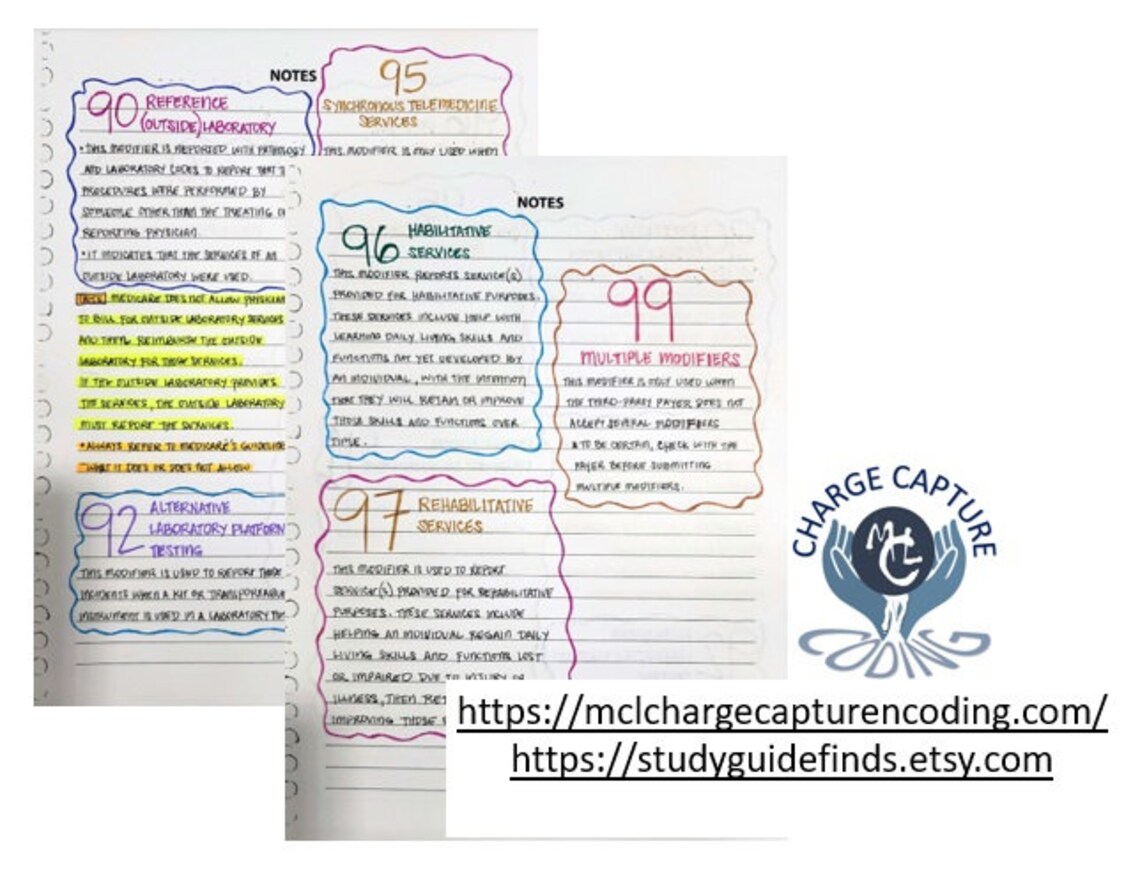 NOTES
90 REFERENCE
(OUTSIDE) LABORATORY
• THIS MODIFIER IS REPORTED WITH PATHOLOGY
AND LABORATORY CODES TO REPORT THAT
PROCEDURES WERE PERFORMED BY
SOMEONE OTHER THAN THE TREATING
REPORTING PHYSICIAN.
• IT INDICATES THAT THE SERVICES OF AN
OUTSIDE LABORATORY WERE USED.
MEDICARE DOES NOT ALLOW PHYSICIAN
TO BILL FOR OUTSIDE LABORATORY SERVICES
AND THEN REIMBURSE THE OUTSIDE
LABORATORY FOR THOSE SERVICES.
IF THE OUTSIDE LABORATORY PROVIDES
THE SERVICES, THE OUTSIDE LABORATORY
MUST REPORT THE SERVICES.
• ALWAYS REFER TO MEDICARE'S GUIDELINE
WHAT IT DOES OR DOES NOT ALLOW
92 ALTERNATIVE
LABORATORY PLATFORM
TESTING
THIS MODIFIER IS USED TO REPORT THOSE
INCIDENTS WHEN A KIT OR TRANSPORTABLE
INSTRUMENT IS USED IN A LABORATORY
95
SYNCHRONOUS TELEMEDICINE
SERVICES
THIS MODIFIER IS ONLY USED WHEN
NOTES
96 HABILITATIVE
SERVICES
THIS MODIFIER REPORTS SERVICE(S)
PROVIDED FOR HABILITATIVE PURPOSES.
THESE SERVICES INCLUDE HELP WITH
LEARNING DAILY LIVING SKILLS AND
FUNCTIONS NOT YET DEVELOPED BY
AN INDIVIDUAL, WITH THE INTENTION
THAT THEY WILL RETAIN OR IMPROVE
THOSE SKILLS AND FUNCTIONS OVER
TIME.
97 REHABILITATIVE
SERVICES
THIS MODIFIER IS USED TO REPORT
SERVICE(S) PROVIDED FOR REHABILITATIVE
PURPOSES. THESE SERVICES INCLUDE
HELPING AN INDIVIDUAL REGAIN DAILY
LIVING SKILLS AND FUNCTIONS LOST
OR IMPAIRED DUE TO INJURY OR
ILLNESS, THEN
IMPROVING THOSE
99
MULTIPLE MODIFIERS
THIS MODIFIER IS ONLY USED WHEN
THE THIRD-PARTY PAYER DOES NOT
ACCEPT SEVERAL MODIFIERS
TO BE CERTAIN, CHECK WITH THE
PAYER BEFORE SUBMITTING
MULTIPLE MODIFIERS.
CHARGE CAPTURE
MCL
CODING
https://mclchargecapturencoding.com/
https://studyguidefinds.etsy.com